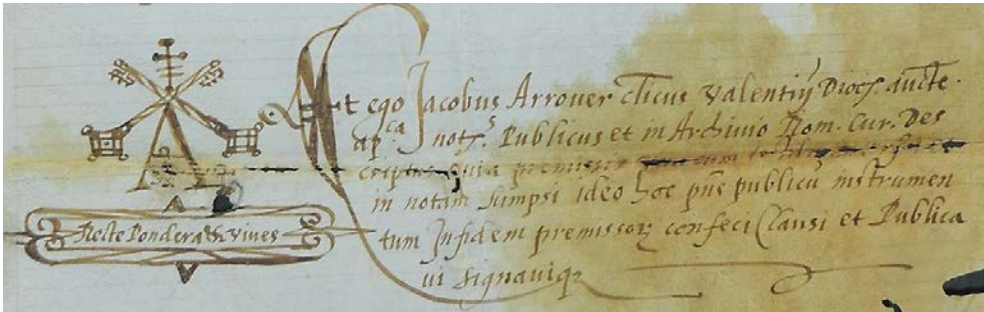 Et ego Jacobus Arrover cl̅icus Valentiń Dioc̃. aucte.
ap.ca not.s Publicus et in Archivio Rom. Cur. Des
criptus quia premissis
in notam sumpsi ideo hoc pn̅s publicũ instrumen
tum Infidem premissorꝝ confeci Clausi et Publica
vi signaviqꝫ
Recte Pondera & vives